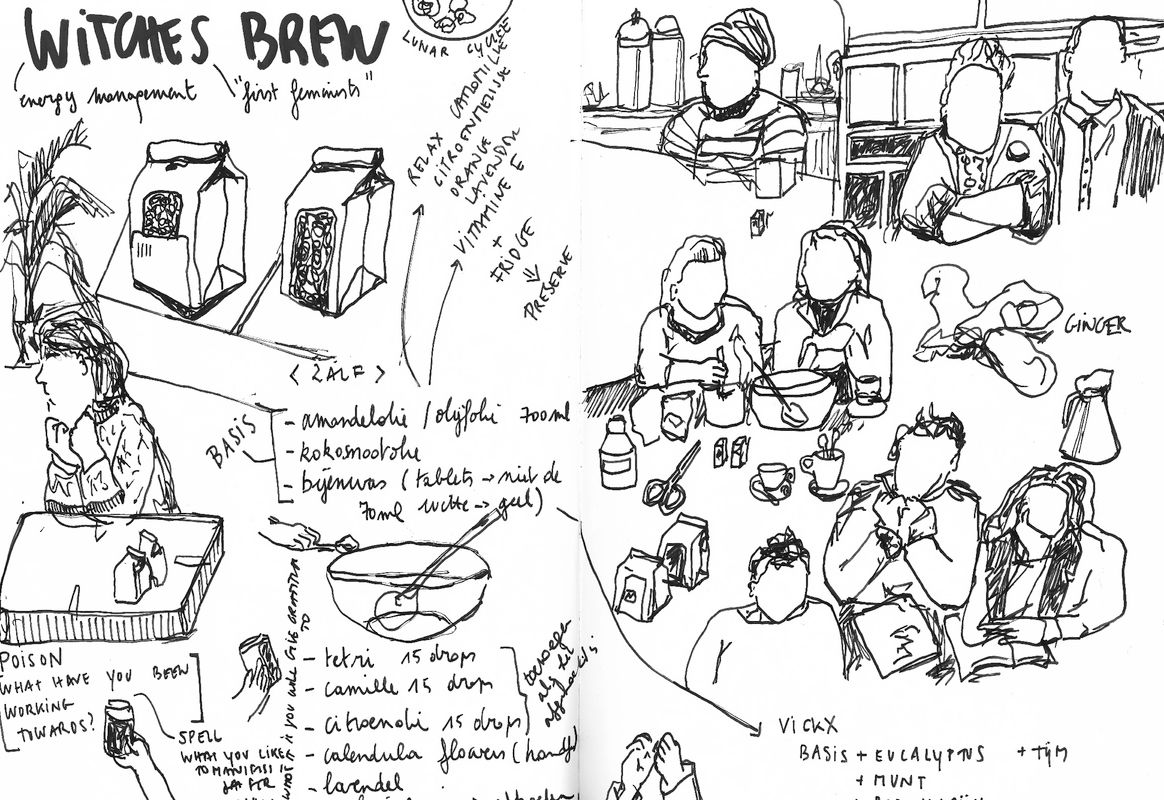 WITCHES BREW
energy management
"first feminists"
LUNAR CYCLE
RELAX CAMOMILLE
CITROENMELISSE
ORANGE
LAVENDAR
VITAMINE E
+
FRIDGE
PRESERVE
< ZALF >
BASIS
- amandelolie / olijfolie 700 ml
- kokosnootolie
- bijenwas (tablets → niet de
70ml witte → geel)
POISON
WHAT HAVE YOU BEEN
WORKING
TOWARDS?
SPELL
WHAT YOU LIKE
TO MANIFEST
YOU WILL GIVE GRATITUDE
TO
- tetri 15 drops
- camille 15 drops
- citroenolie 15 drops
- calendula flowers (handful
- lavendel
toevoegen
GINGER
VICKX
BASIS + EUCALYPTUS + TIJM
+ MUNT